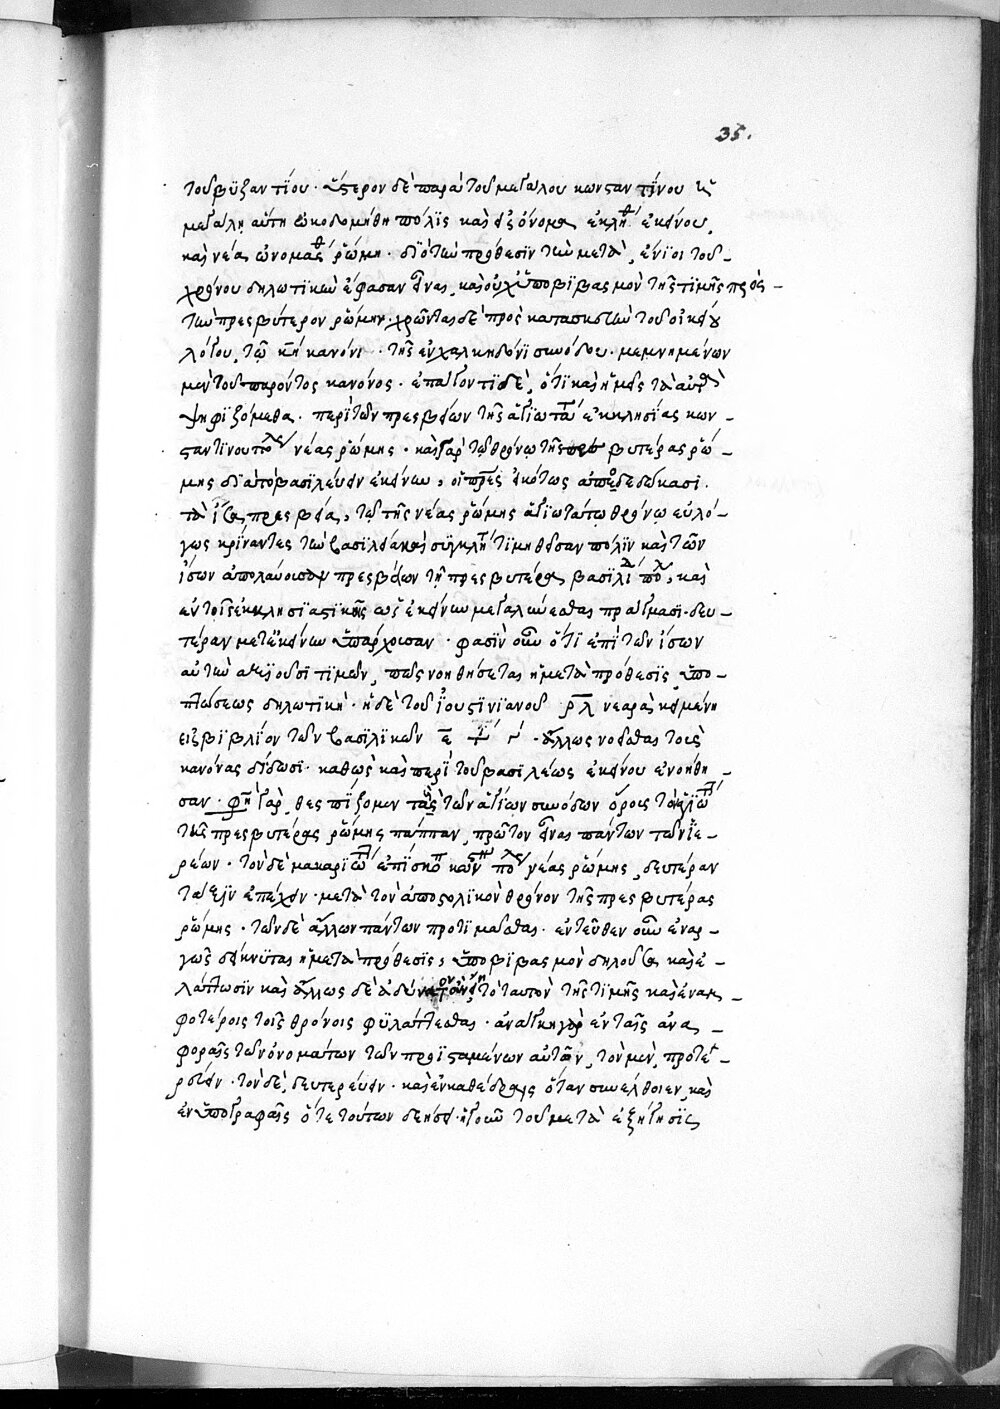 35.
τοῦ βϋζαντΐου · ὕστερον δὲ παρὰ τοῦ μεγάλου κωνσταντΐνου ἡ
μεγάλη αὕτη ὠκοδομήθη πόλϊς καὶ ἐξ ὀνόμα ἐκλήθ ἐκείνου,
καὶ νέα ὠνομάσθ ῥώμη · διὸ τὴν πρόθεσϊν τὴν μετὰ, ἔνϊοι τοῦ
χρόνου δηλωτϊκὴν ἔφασαν εἶναι, καὶ οὐχ ὑποβϊβασμὸν τῆς τϊμῆς πρὸς
τὴν πρεσβύτερον ῥώμην · χρῶνται δὲ πρὸς κατασκευὴν τοῦ οἰκείου
λόγου, τῷ κη κανόνι · τῆς ἐν χαλκηδόνϊ συνόδου · μεμνημένων
μὲν τοῦ παρόντος κανόνος · ἐπάγοντϊ δὲ, ὅτϊ καὶ ἡμεῖς τὰ αὐτὰ
ψηφϊζόμεθα · περὶ τῶν πρεσβείων τῆς ἁγϊωτά ἐκκλησίας κων
σταντϊνουπόλ νέας ῥώμης · καὶ γὰρ τῷ θρόνῳ τῆς πρεσβυτέρας ῥώ
μης δϊὰ τὸ βασϊλεύειν ἐκείνην, οἱ πρες εἰκότως ἀποδεδώκασι ·
τὰ ἶσα πρεσβεῖα, τῷ τῆς νέας ῥώμης ἁγϊωτάτῳ θρόνῳ εὐλό
γως κρϊναντες τὴν βασϊλεία καὶ συγκλήτ τϊμηθεῖσαν πόλϊν καὶ τῶν
ἴσων ἀπολαύουσαν πρεσβείων τῇ πρεσβυτέρα βασϊλίδ πόλ, καὶ
ἐν τοῖς ἐκκλησϊαστϊκοῖς ὡς ἐκείνην μεγαλύνεσθαι πράγμασι · δευ
τέραν μετ' ἐκείνην ὑπάρχουσαν · φασὶν οὖν ὅτϊ ἐπὶ τῶν ἴσων
αὐτὴν ἀξιοῦσϊ τϊμῶν, πῶς νοηθήσεται ἡ μετὰ πρόθεσϊς, ὑπο
πτώσεως δηλωτϊκὴ · ἡ δὲ τοῦ ἰουστϊνϊανοῦ ρλ νεαρὰ κειμένη
εἰς βϊβλίον τῶν βασϊλϊκῶν ε ἄλλως νοεῖσθαι τοὺς
κανόνας δίδωσι · καθὼς καὶ περὶ τοῦ βασϊλέως ἐκείνου ἐνοήθη
σαν · φη γὰρ, θεσπίζομεν τοῖς τῶν ἁγίων συνόδων ὅροις τὸν ἁγϊώτ
τῆς πρεσβυτέρας ῥώμης πάππαν, πρῶτον εἶναι πάντων τῶν ϊε
ρέων · τὸν δὲ μακαρϊώτ ἐπΐσκοπ κων πόλ νέας ῥώμης, δευτέραν
τάξϊν ἐπέχειν · μετὰ τὸν ἀποστολϊκὸν θρόνον τῆς πρεσβυτέρας
ῥώμης · τῶν δὲ ἄλλων πάντων προτϊμᾶσθαι · ἐντεῦθεν οὖν ἐναρ
γῶς δείκνυται ἡ μετὰ πρόθεσϊς, ὑποβϊβασμὸν δηλοῦσα καὶ ἐ
λάττωσϊν καὶ ἄλλως δὲ ἀδύνατον ἦν, τὸ ταυτὸν τῆς τϊμῆς καὶ ἐν ἀμ
φοτέροις τοῖς θρόνοις φϋλάττεσθαι · ἀνάγκη γὰρ ἐν ταῖς ἀνα
φοραῖς τῶν ὀνομάτων τῶν προϊσταμένων αὐτῶν, τὸν μὲν, προτε
ρεύειν · τὸν δὲ, δευτερεύειν · καὶ ἐν καθέδραις ὅταν συνέλθοιεν, καὶ
ἐν ὑπογραφαῖς ὅτε τούτων δεήσει · ἡ γοῦν τοῦ μετὰ ἐξήγησϊς